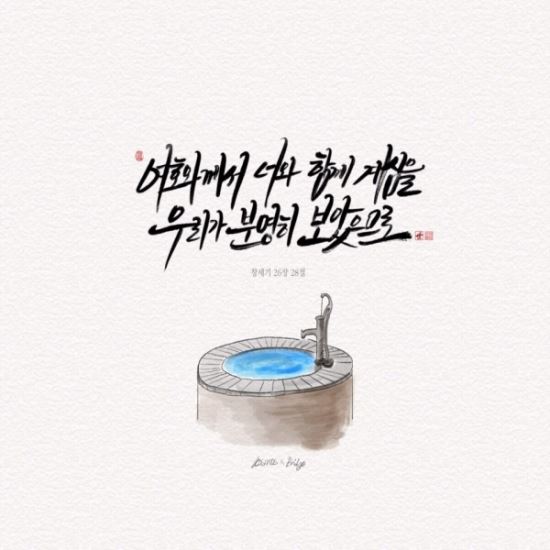 여호와께서 너와 함께 계심을
우리가 분명히 보았으므로
창세기 26장 28절